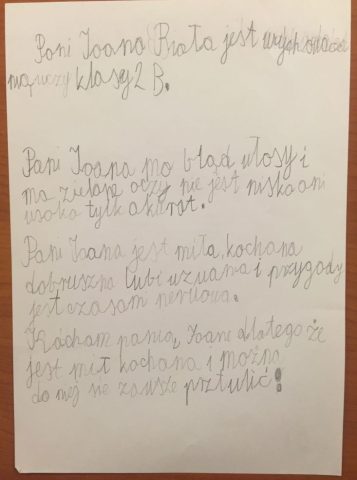 Pani Joana Biała jest
nauczy klasy 2 B.
Pani Joana mo błąd włosy i
ma zielone oczy nie jest niska ani
wsoka tylk akurat.
Pani Joana jest miła, kochana
dobruszna lubi wzwania i przygody
jest czasam nerwowa.
Kocham panią Joane dlatego że
jest mił kochana i można
do niej sie zawsze prztulić!